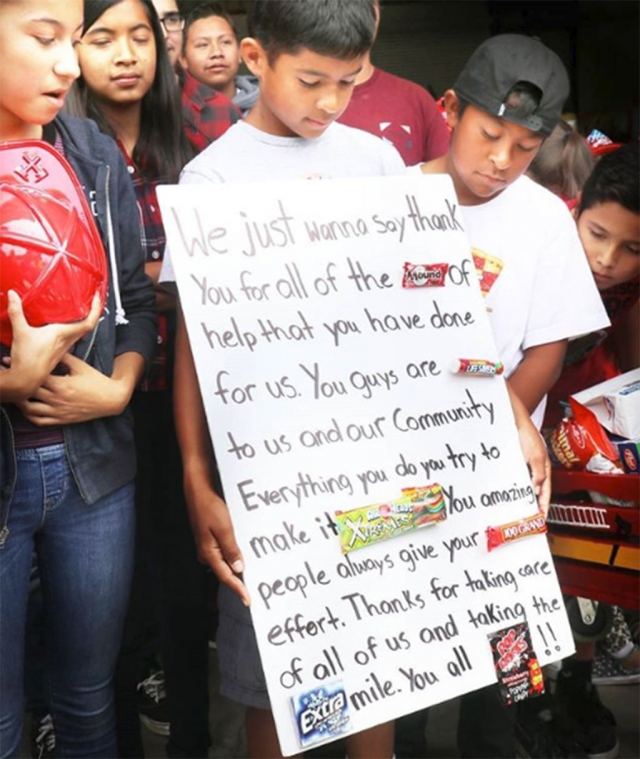 We just wanna say thank
You for all of the Mound of
help that you have done
for us. You guys are LIFE SAVERS
to us and our Community
Everything you do you try to
make it AIRHEADS XTREMES You amazing
people always give your 100 GRAND
effort. Thanks for taking care
of all of us and taking the
Extra mile. You all POP ROCKS !!